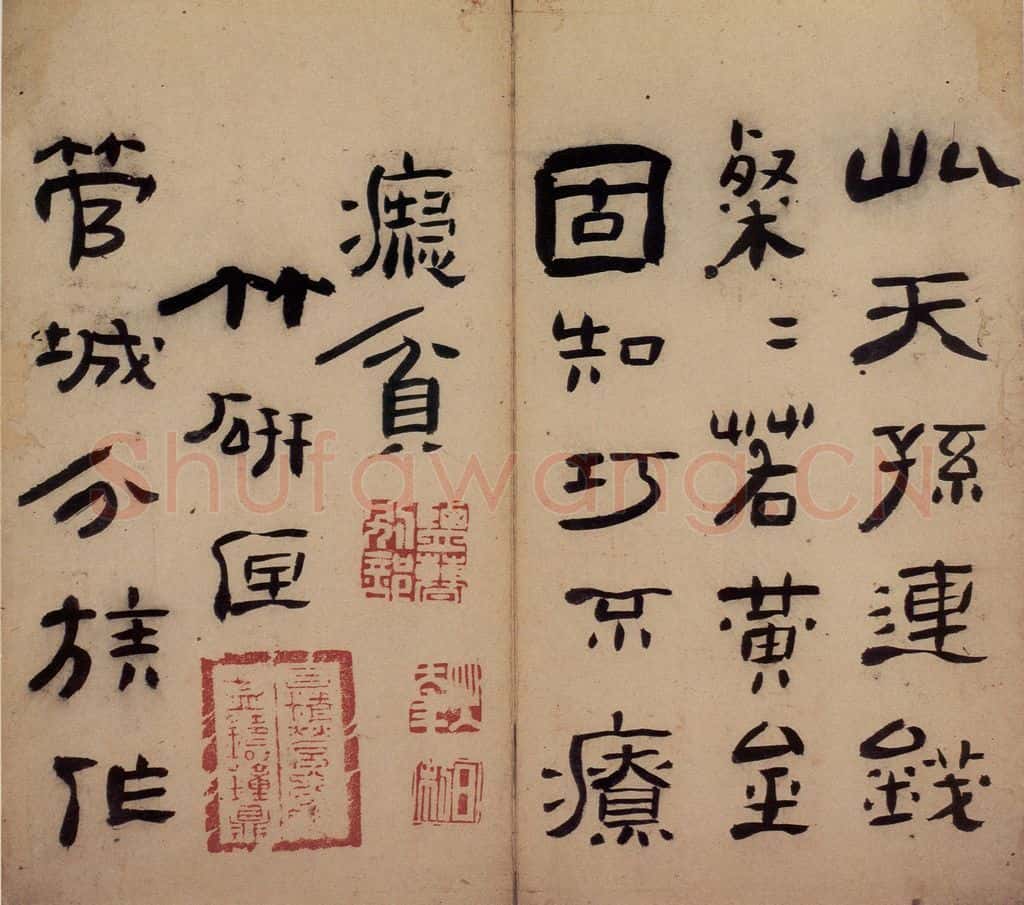 此天孫連錢
粲〻若黃金
固知巧不療
癡貧
竹研匣
管城分族作
Shufawang.CN